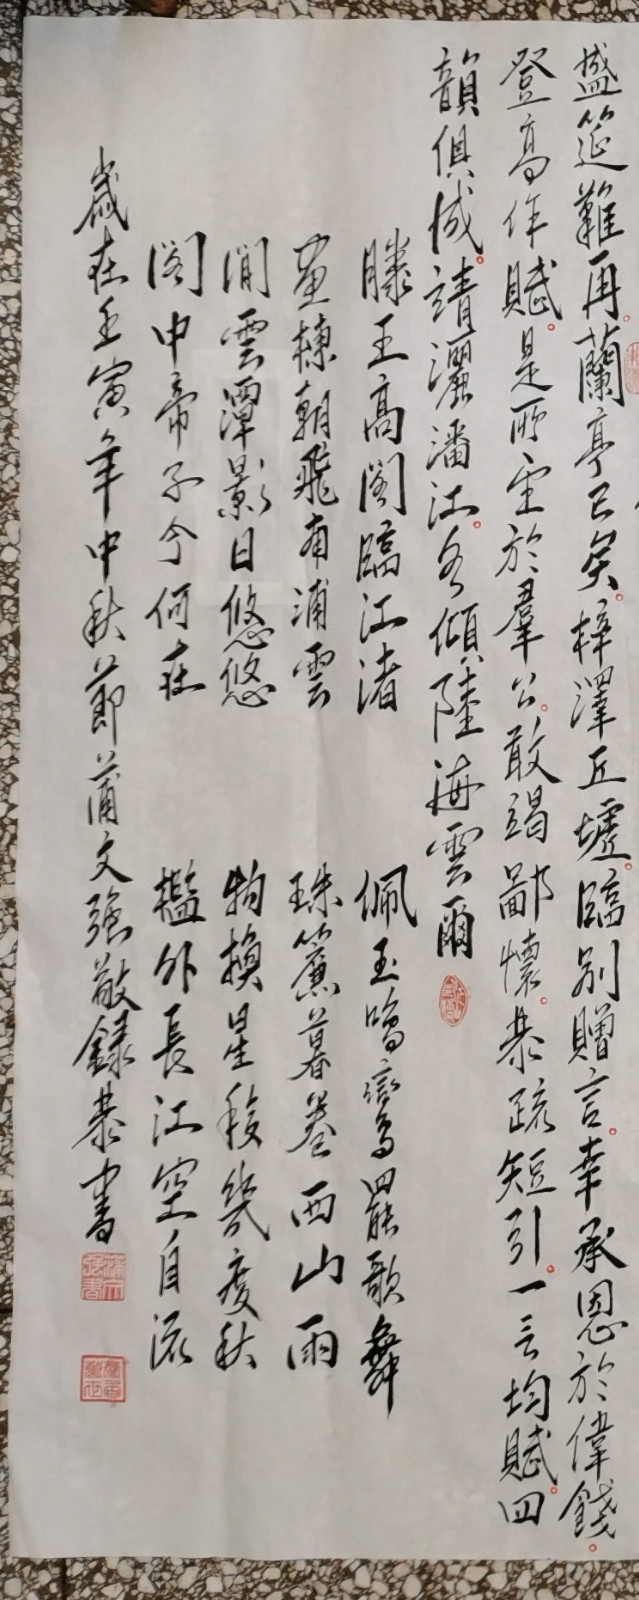 盛筵難再。蘭亭已矣。梓澤丘墟。臨別贈言。幸承恩於偉餞。
登高作賦。是所望於羣公。敢竭鄙懷。恭疏短引。一言均賦。四
韻俱成。請灑潘江。各傾陸海雲爾
滕王高閣臨江渚 佩玉鳴鸞罷歌舞
畫棟朝飛南浦雲 珠簾暮卷西山雨
閒雲潭影日悠悠 物換星移幾度秋
閣中帝子今何在 檻外長江空自流
歲在壬寅年中秋節蒲文強敬錄恭書